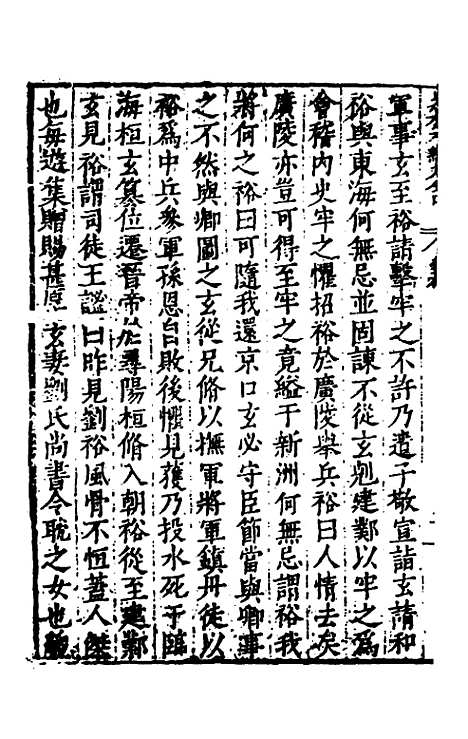 軍事玄至裕請擊牢之不許乃遣子敬宣詣玄請和
裕與東海何無忌並固諫不從玄剋建鄴以牢之爲
會稽內史牢之懼招裕於廣陵舉兵裕曰人情去矣
廣陵亦豈可得至牢之竟縊于新洲何無忌謂裕我
將何之裕曰可隨我還京口玄必守臣節當與卿事
之不然與卿圖之玄從兄脩以撫軍將軍鎮丹徒以
裕爲中兵參軍孫恩自敗後懼見獲乃投水死于臨
海桓玄篡位遷晉帝於尋陽桓脩入朝裕從至建鄴
玄見裕謂司徒王謐曰昨見劉裕風骨不恒蓋人傑
也每遊集贈賜甚厚玄妻劉氏尚書令耽之女也